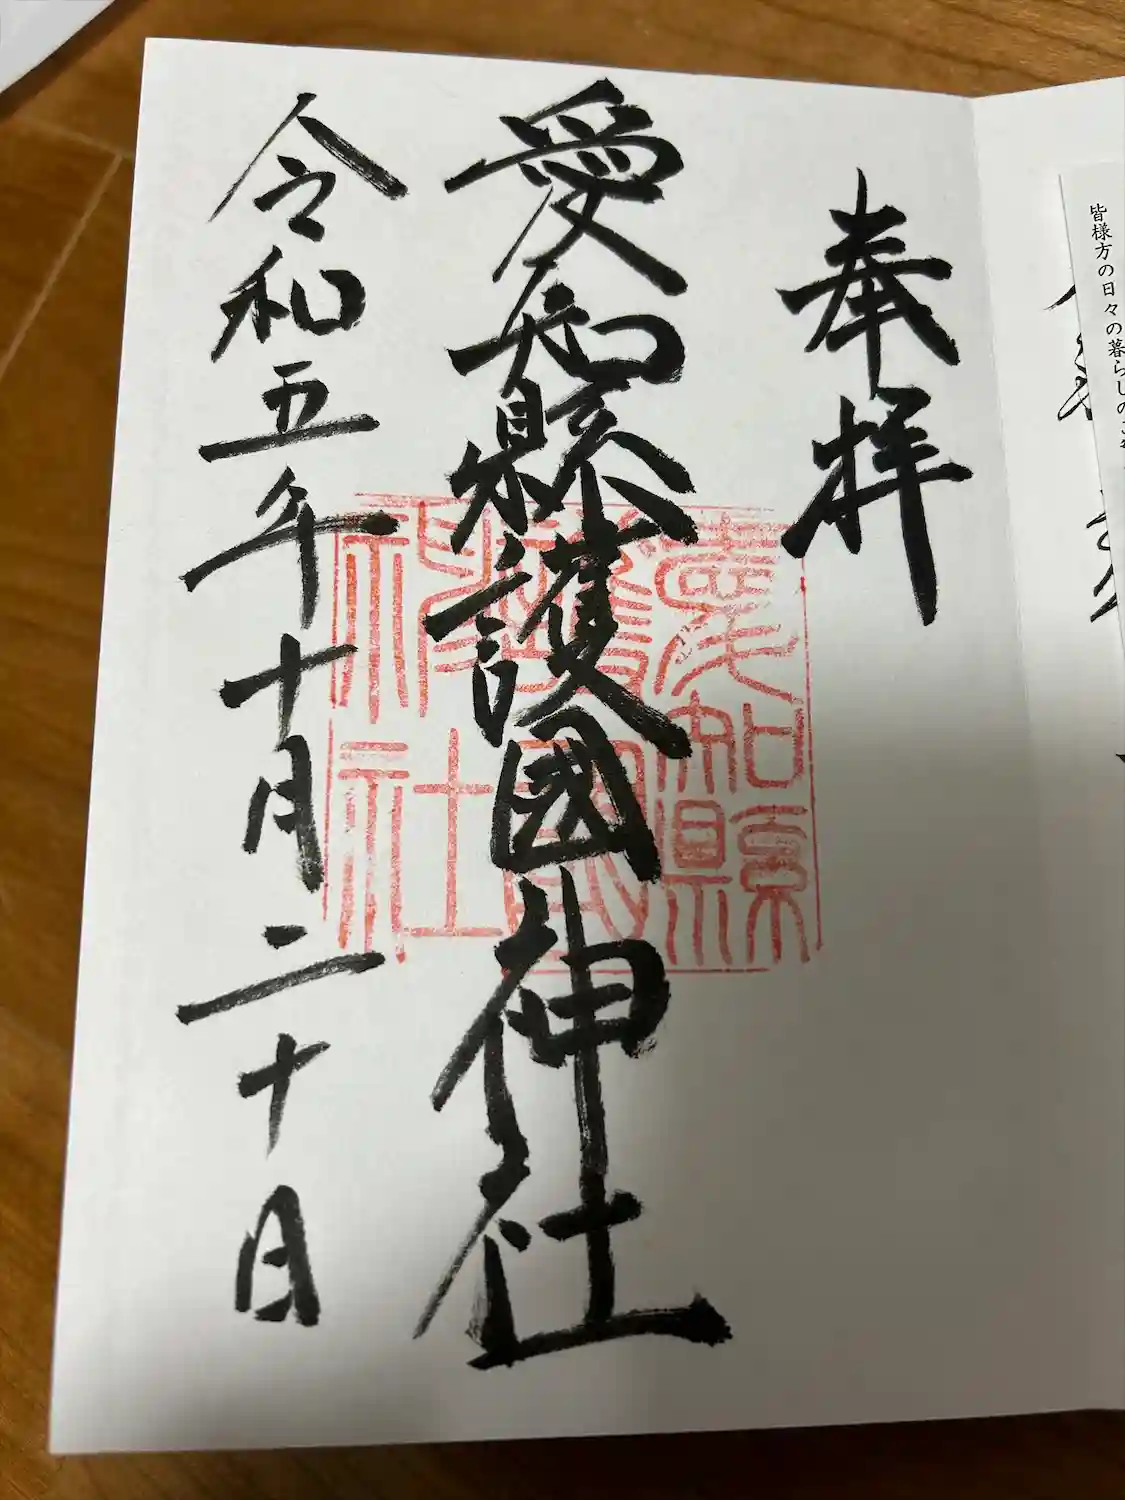 皆様方の日々の暮らしの
奉拝
愛知縣護國神社
愛知縣護國神社
令和五年十月二十日